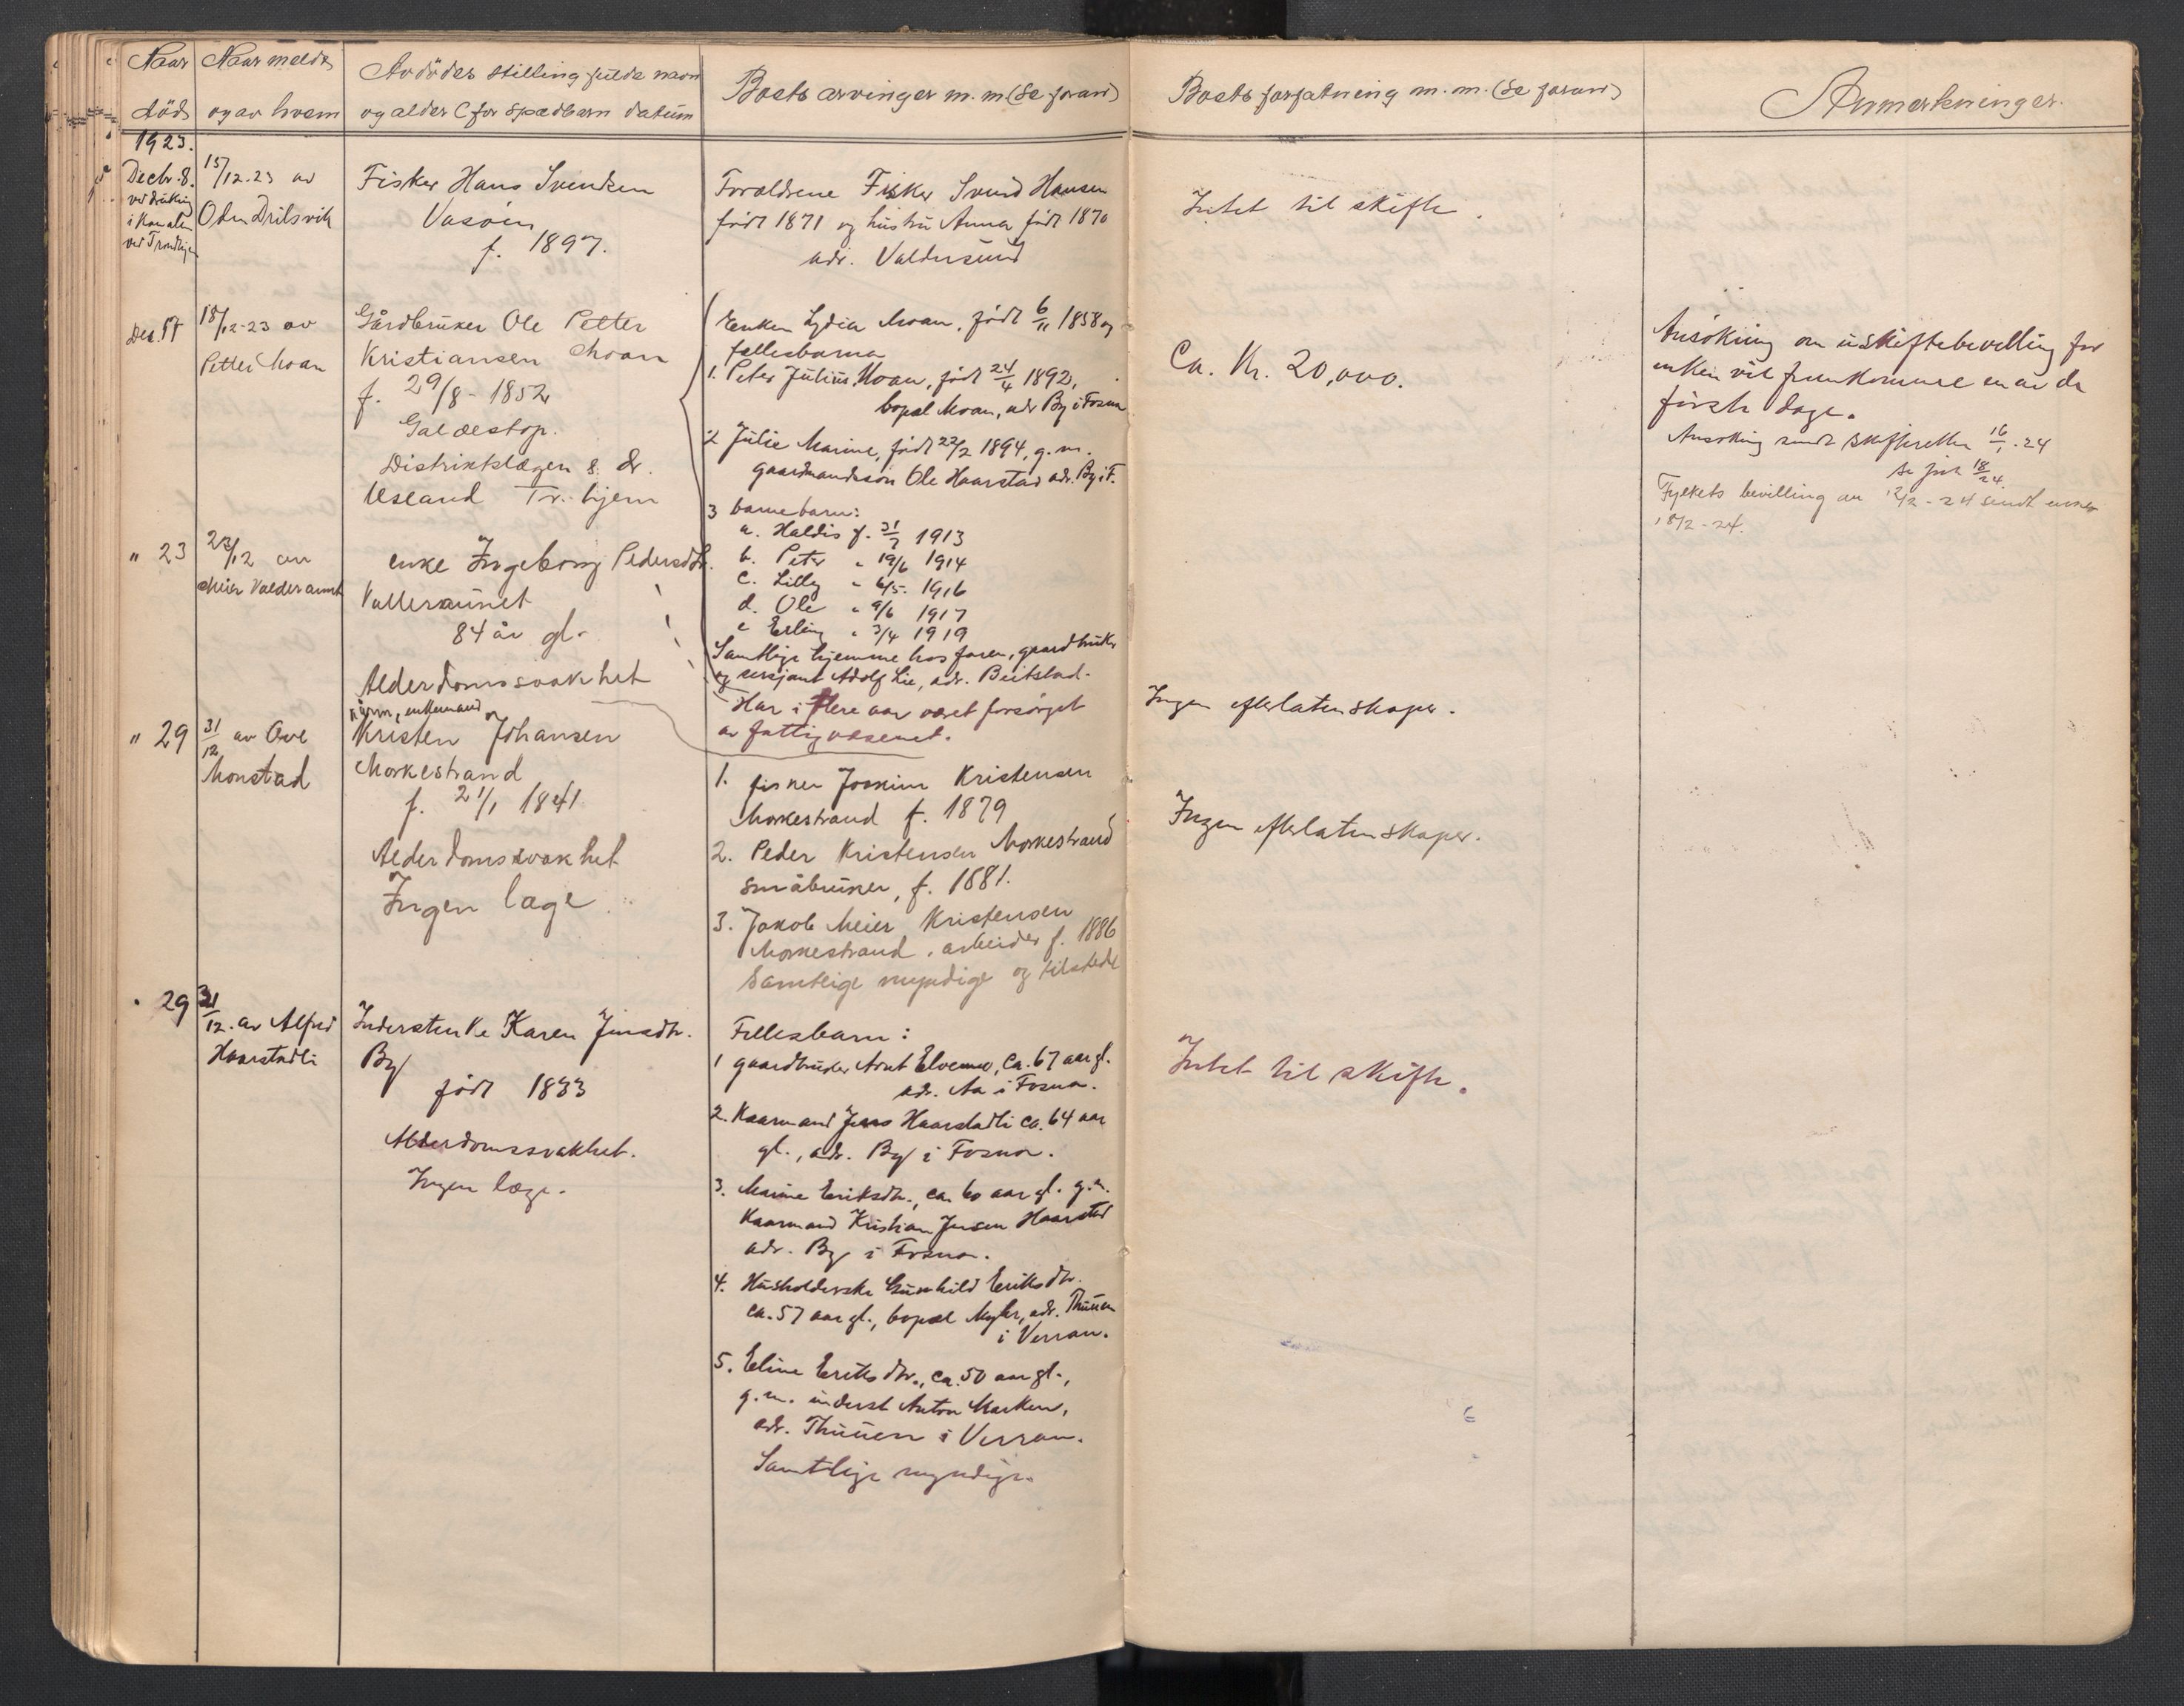 Naar
död
Naar meldt
og av hvem
Avdödes stilling fulde navn
og alder (for spædbarn datum
Boets arvinger m.m. (se foran)
Boets forfatning m.m. (se foran)
Anmerkninger.
1923.
Decbr. 8.
ved drukning
i Kanalen
ved Trondhjem
15/12.23 av
Oden Drilsvik
Fisker Hans Svendsen
Vasöien
f. 1897.
Forældrene Fisker Svend Hansen
født 1871 og hustru Anna født 1870
adr. Valdersund
Intet til skifte.
Des. 17
18/12-23 av
Petter Moan
Gårdbruker Ole Petter
Kristiansen Moan
f. 29/8-1852
Galdestop.
Distriktslægen s. dr.
Useland Tr.hjem
Enken Lydia Moan, født 6/11 1858 og
fellesbarna
1. Peter Julius Moan, født 24/4 1892,
bopæl Moan, adr By i Fosna
2 Julie Marine, født 22/2 1894, g. m.
gaardmandssön Ole Haarstad adr. By i F.
3 barnebarn:
a. Haldis f. 31/7 1913
b. Peter " 19/6 1914
c. Lilly " 6/5. 1916
d. Ole " 9/6 1917
e Erling " 3/4 1919
Samtlige hjemme hos faren, gaardbruker
og sersjant Adolf Lie, adr. Beitstad.
Ca. Kr. 20,000.
Ansökning om uskiftebevilling for
enken vil fremkomme en av de
förste dage.
Ansökning sendt skifteretten 16/1.24
se jour 18/24.
Fylkets bevilling av 12/2-24 sendt enken
18/2-24.
" 23
28/12 av
Meier Valderaunet
enke Ingeborg Pedersdtr.
Valleraunet
84 år gl.
Alderdomssvakhet
Har i flere aar været forsörget
av fattigvæsenet.
Ingen efterlatenskaper.
" 29
31/12 av Ove
Monstad
kårm, enkemand
Kristen Johansen
Morkestrand
f. 21/1 1841
Alderdomssvakhet
Ingen læge
1. fisker Joakim Kristensen
Morkestrand f. 1879
2. Peder Kristensen Morkestrand
småbruker, f. 1881.
3. Jakob Meier Kristensen
Morkestrand, arbeider f. 1886
Samtlige myndige og tilstede
Ingen efterlatenskaper.
" 29
31/12. av Alfred
Haarstadli
Inderstenke Karen Jensdtr.
By
født 1833
Alderdomssvakhet.
Ingen læge.
Fellesbarn:
1 gaardbruker Arnt Elvemo, ca. 67 aar gl.
adr. Aa i Fosna.
2. Kaarmand Jens Haarstadli ca. 64 aar
gl., adr. By i Fosna.
3. Marine Eriksdtr., ca. 60 aar gl. g.m.
Kaarmand Kristian Jensen Haarstad
adr. By i Fosna.
4. Husholderske Gunhild Eriksdtr.
ca. 57 aar gl., bopæl Myhr, adr. Thuuen
i Verran.
5. Eline Eriksdtr., ca. 50 aar gl.,
g.m. inderst Anton Marken,
adr. Thuuen i Verran.
Samtlige myndige.
Intet til skifte.